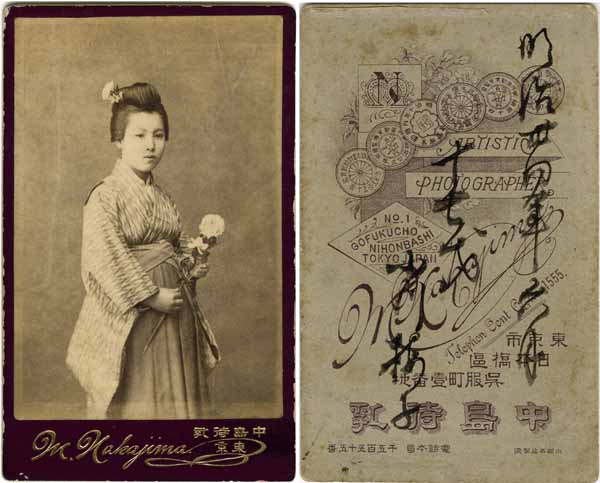 M. Nakajima.
中島待乳
東京
明治卅四年六月
十七歳
N
ARTISTIC
PHOTOGRAPHER
NO. 1
GOFUKUCHO
NIHONBASHI
TOKYO JAPAN
M. Nakajima
Telephon Cent 1555.
東京市
日本橋區
呉服町壹番地
中島待乳
電話本局 千五百五十五番